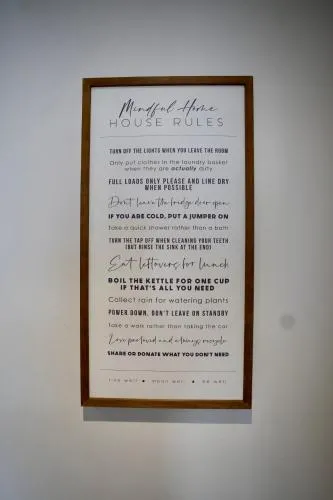 Mindful Home
HOUSE RULES
TURN OFF THE LIGHTS WHEN YOU LEAVE THE ROOM
Only put clothes in the laundry basket
when they are actually dirty
FULL LOADS ONLY PLEASE AND LINE DRY
WHEN POSSIBLE
Don't leave the fridge door open
IF YOU ARE COLD, PUT A JUMPER ON
Take a quick shower rather than a bath
TURN THE TAP OFF WHEN CLEANING YOUR TEETH
(BUT RINSE THE SINK AT THE END)
Eat leftovers for lunch
BOIL THE KETTLE FOR ONE CUP
IF THAT'S ALL YOU NEED
Collect rain for watering plants
POWER DOWN, DON'T LEAVE ON STANDBY
Take a walk rather than taking the car
Love preloved and always recycle
SHARE OR DONATE WHAT YOU DON'T NEED
live well ★ mean well ★ be well